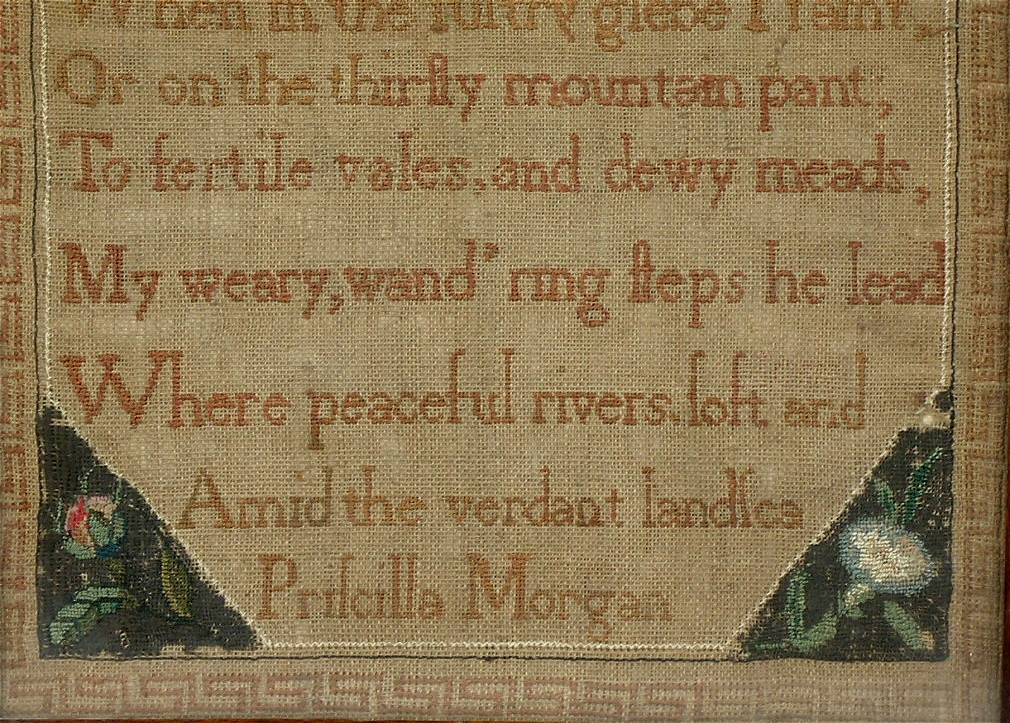 When in the ſultry glebe I faint,
Or on the thirſty mountain pant,
To fertile vales, and dewy meads,
My weary, wand'ring ſteps he lead
Where peaceful rivers ſoft and
Amid the verdant landſca
Priſcilla Morgan